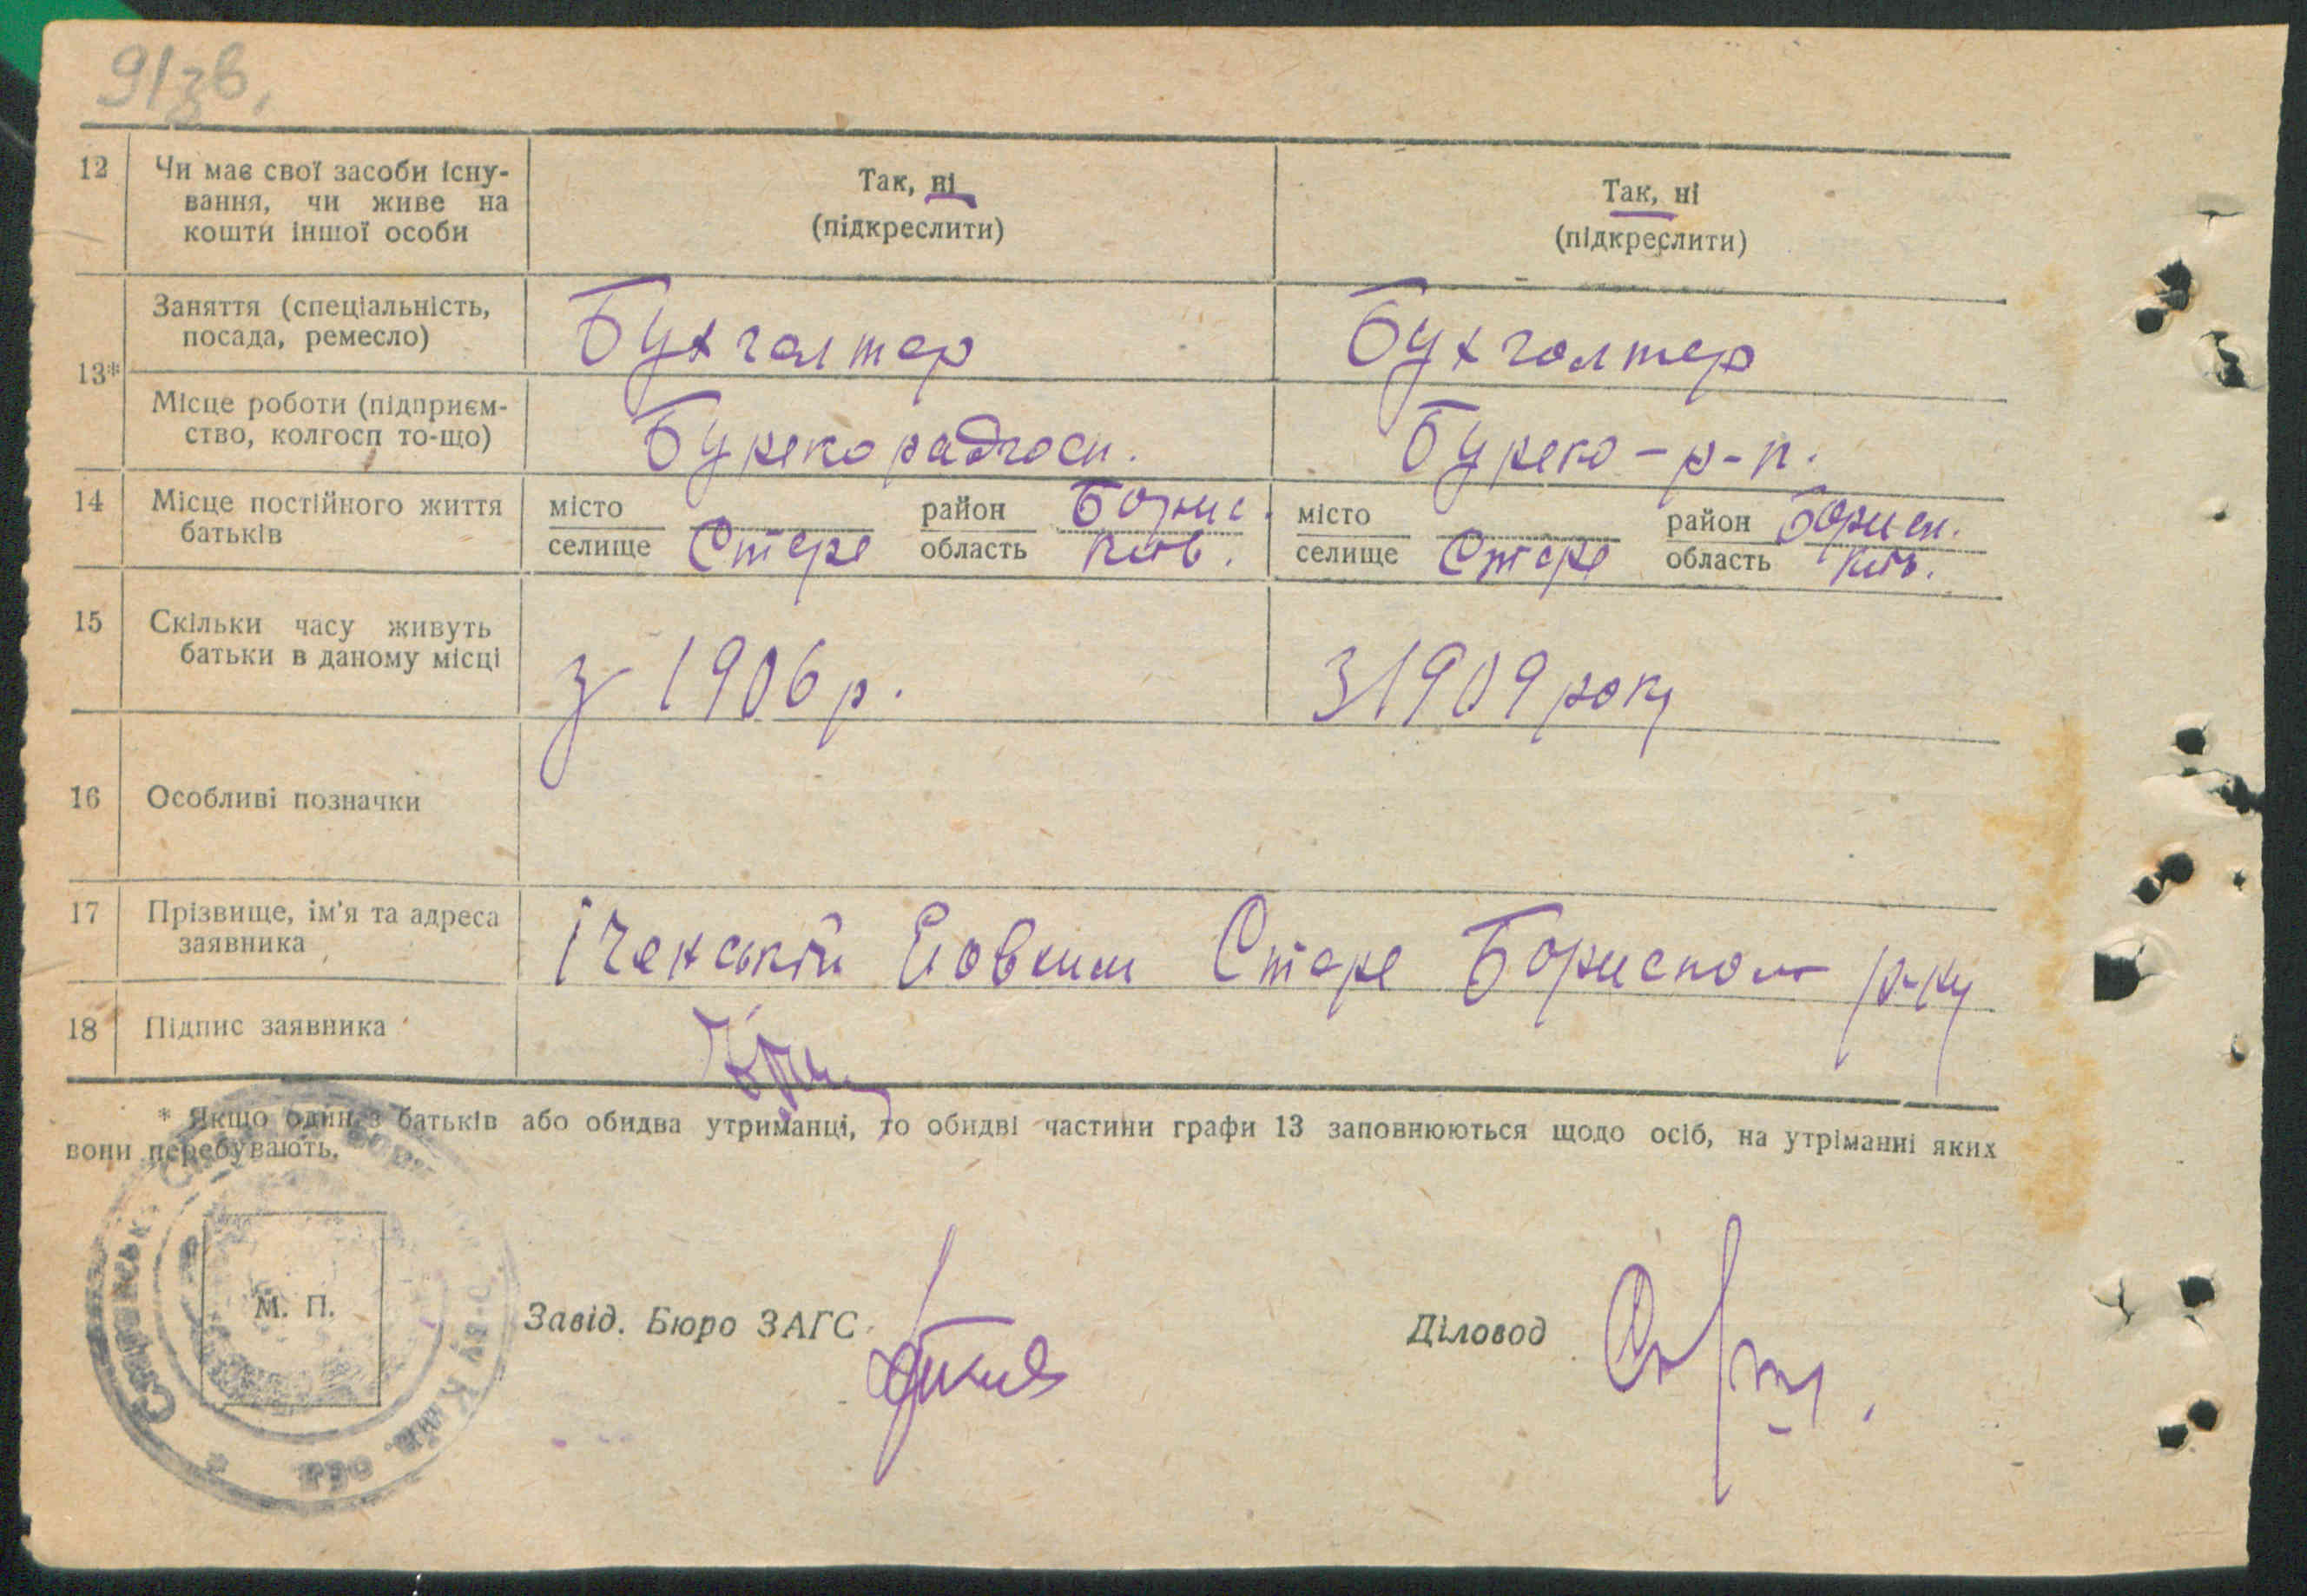 91зв.
12 Чи має свої засоби існу- Так, ні Так, ні
вання, чи живе на (підкреслити) (підкреслити)
кошти іншої особи
Заняття (спеціальність, Бухгалтер Бухгалтер
посада, ремесло)
13*
Місце роботи (підприєм- Бурекорадгосп. Буреко-р-п.
ство, колгосп то-що)
14 Місце постійного життя місто район Борис. місто район Борисп.
батьків селище Старе область Київ. селище Старе область Київ.
15 Скільки часу живуть з 1906 р. З 1909 року
батьки в даному місці
16 Особливі позначки
17 Прізвище, ім'я та адреса Старе Бориспол р-ку
заявника
18 Підпис заявника
* Якщо один з батьків або обидва утриманці, то обидві частини графи 13 заповнюються щодо осіб, на утріманні яких
вони перебувають.
М. П. Завід. Бюро ЗАГС Діловод